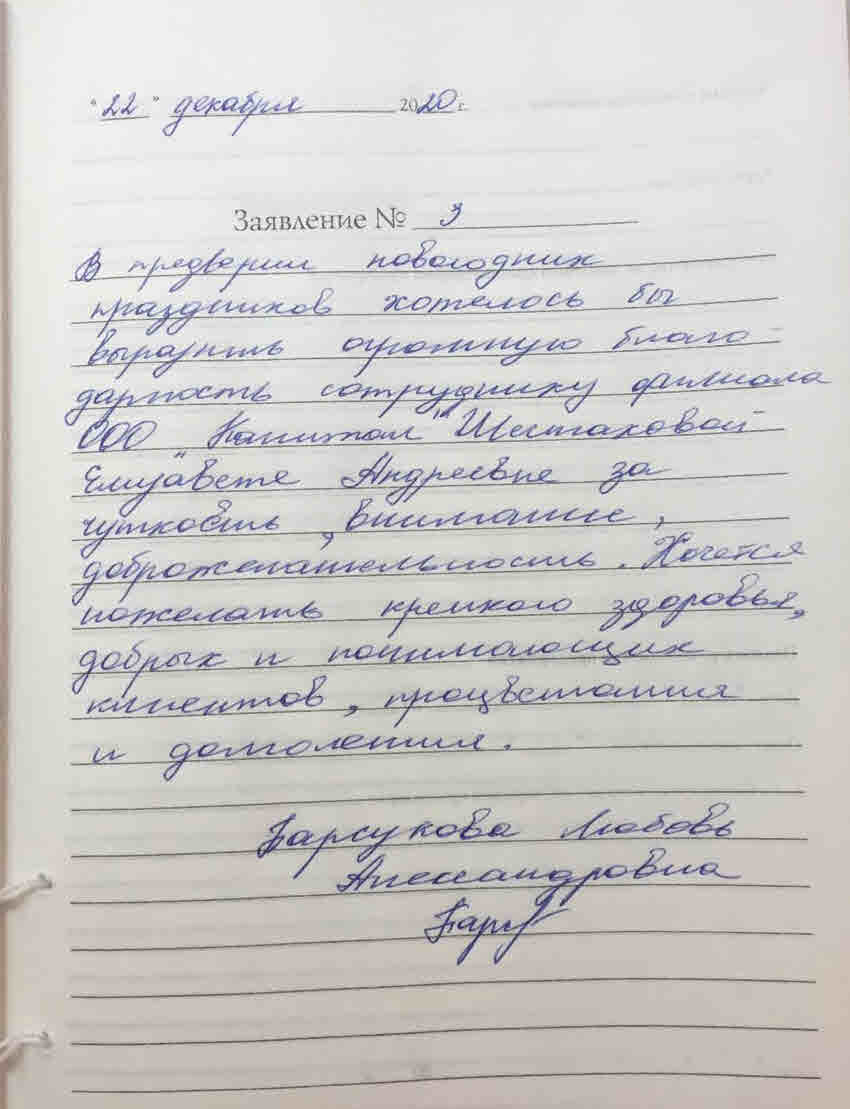 "22" декабря 2020 г.
Заявление № 3
В предверии новогодних
праздников хотелось бы
выразить огромную благо-
дарность сотруднику филиала
ООО "Капитал" Шестаковой
Елизавете Андреевне за
чуткость, внимание,
доброжелательность. Хочется
пожелать крепкого здоровья,
добрых и понимающих
клиентов, процветания
и долголетия.
Барсукова Любовь
Александровна
Барс